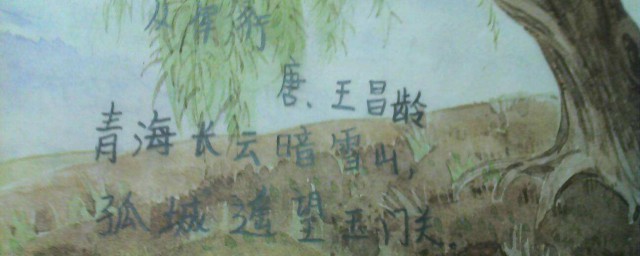 行
唐、王昌龄
青海长云暗雪山,
孤城遥望玉门关.